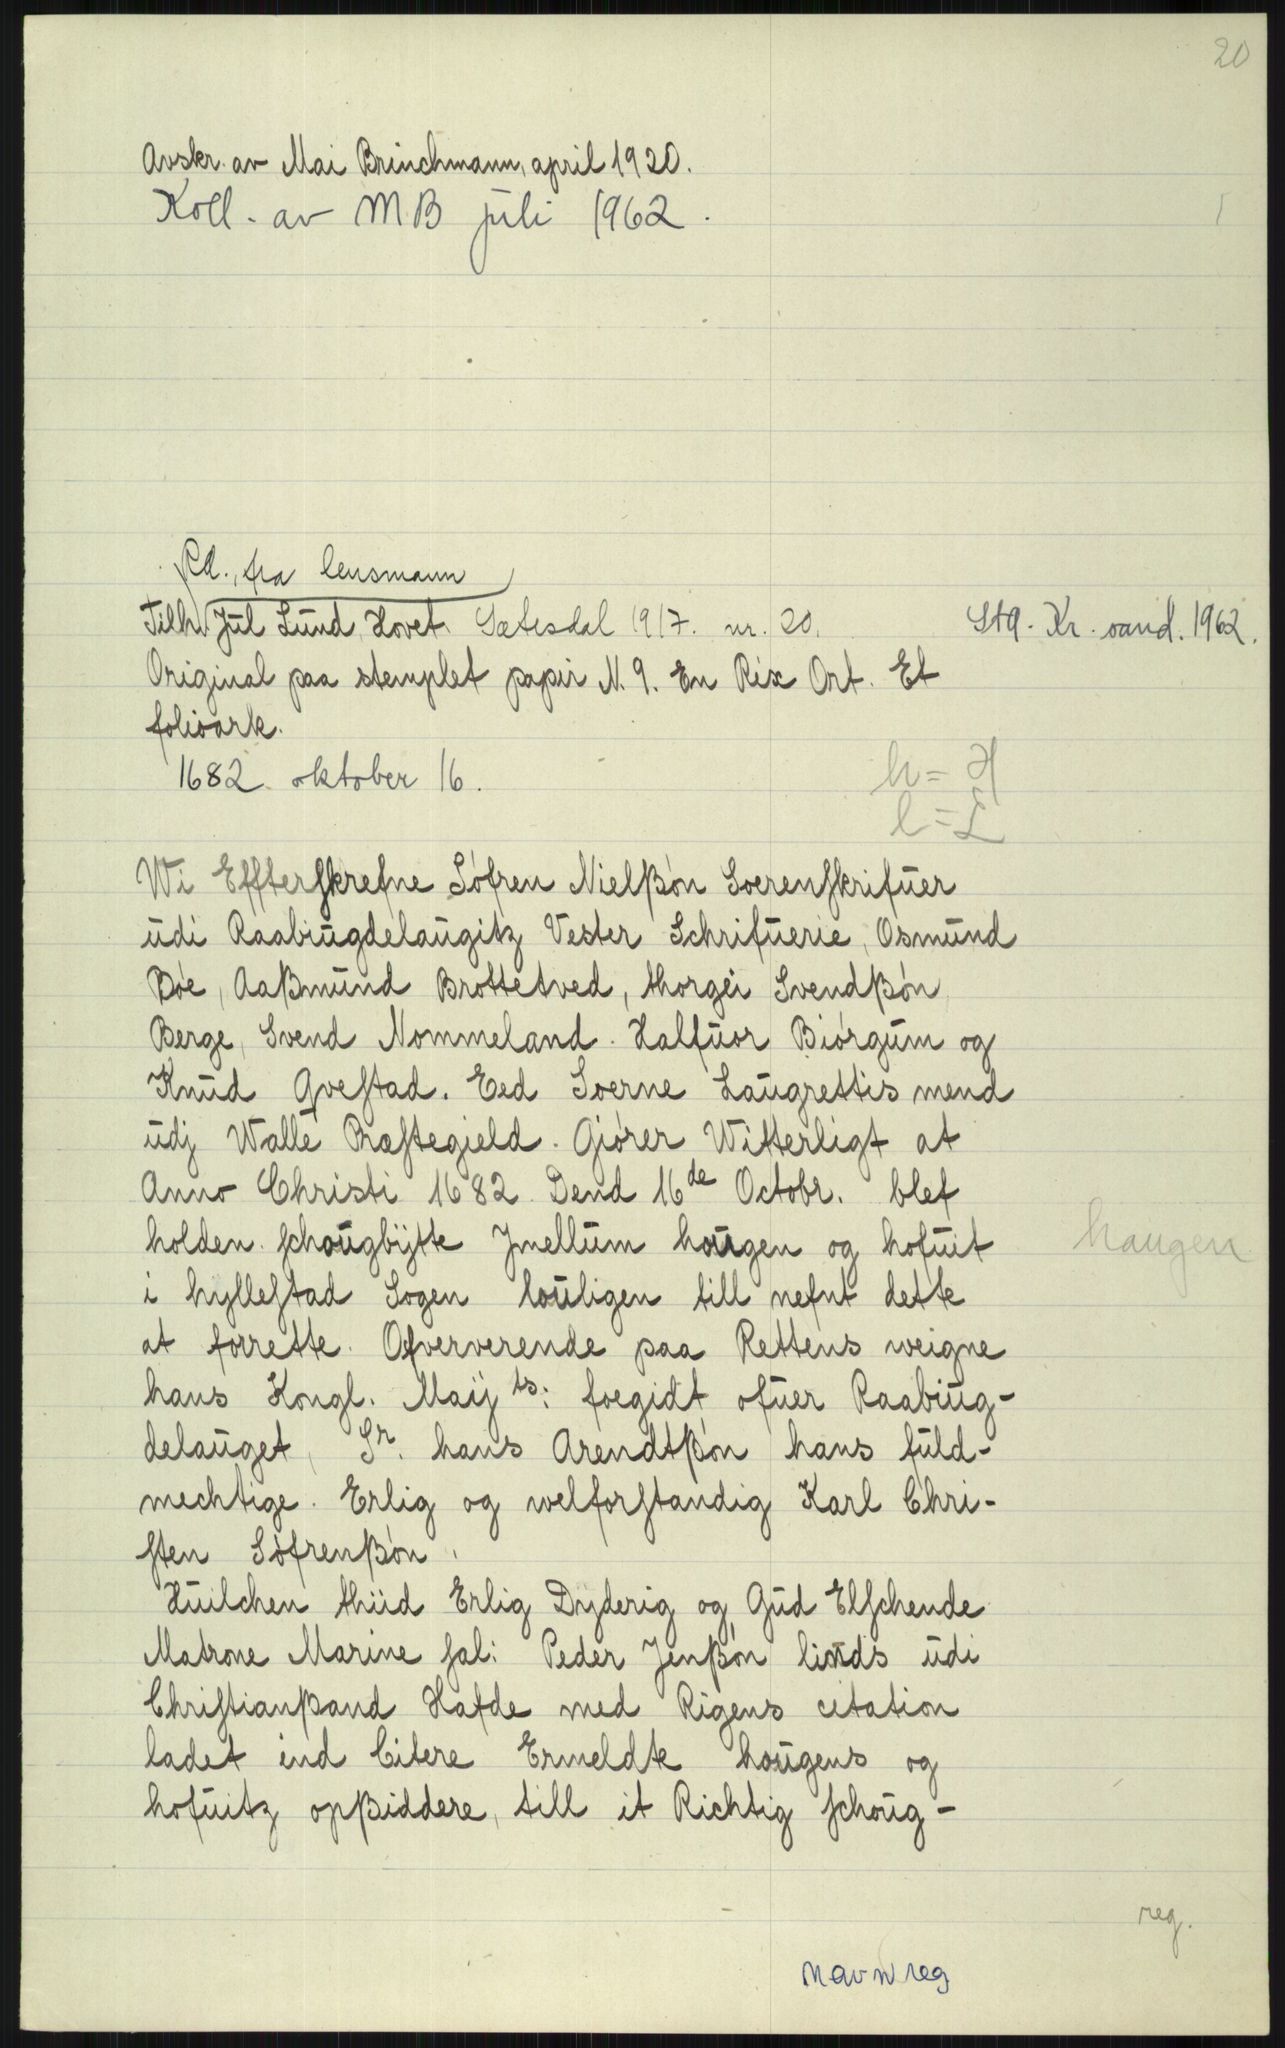 20
Avskr. av Mai Brinchmann, april 1920.
Koll. av MB juli 1962.
Pd., fra lensmann
Tilh. Jul Lund, Hovet. Sætesdal 1917. nr. 20. StA. Kr. sand. 1962.
Original paa stemplet papir N. 9. En Rix Ort. Et
folioark.
1682 oktober 16.
h = H
l = L
Wi Effterskrefne Søfren Nielßøn Sorenskrifuer
udi Raabiugdelaugitz Vester Schrifuerie, Osmund
Bøe, Aaßmund Brottetved, thorgei Svendßøn
Berge, Svend Nommeland. Halfuor Biørgum og
Knud Qvestad. Eed Sorne Laugrettis mend
udj Walle Præstegield. Giører Witterligt at
Anno Christi 1682. Dend 16de Octobr. blef
holden schougbÿtte Jmellum hougen og hofuit haugen
i hyllestad Sogen louligen till nefnt dette
at forrette. Ofververende paa Rettens weigne
hans Kongl. Maijts: foegidt ofuer Raabiug-
delauget, Sr. hans Arendtßøn hans fuld-
mechtige. Erlig og welforstandig Karl Chri-
sten Søfrenßøn.
Huilchen thiid Erlig Dyderig og Gud Elschende
Matrone Marine sal: Peder Jenßøn linds udi
Christianßand Hafde med Rigens citation
ladet ind Citere Ermeldte hougens og
hofuitz opßiddere, till it Richtig schoug-
reg.
navnreg